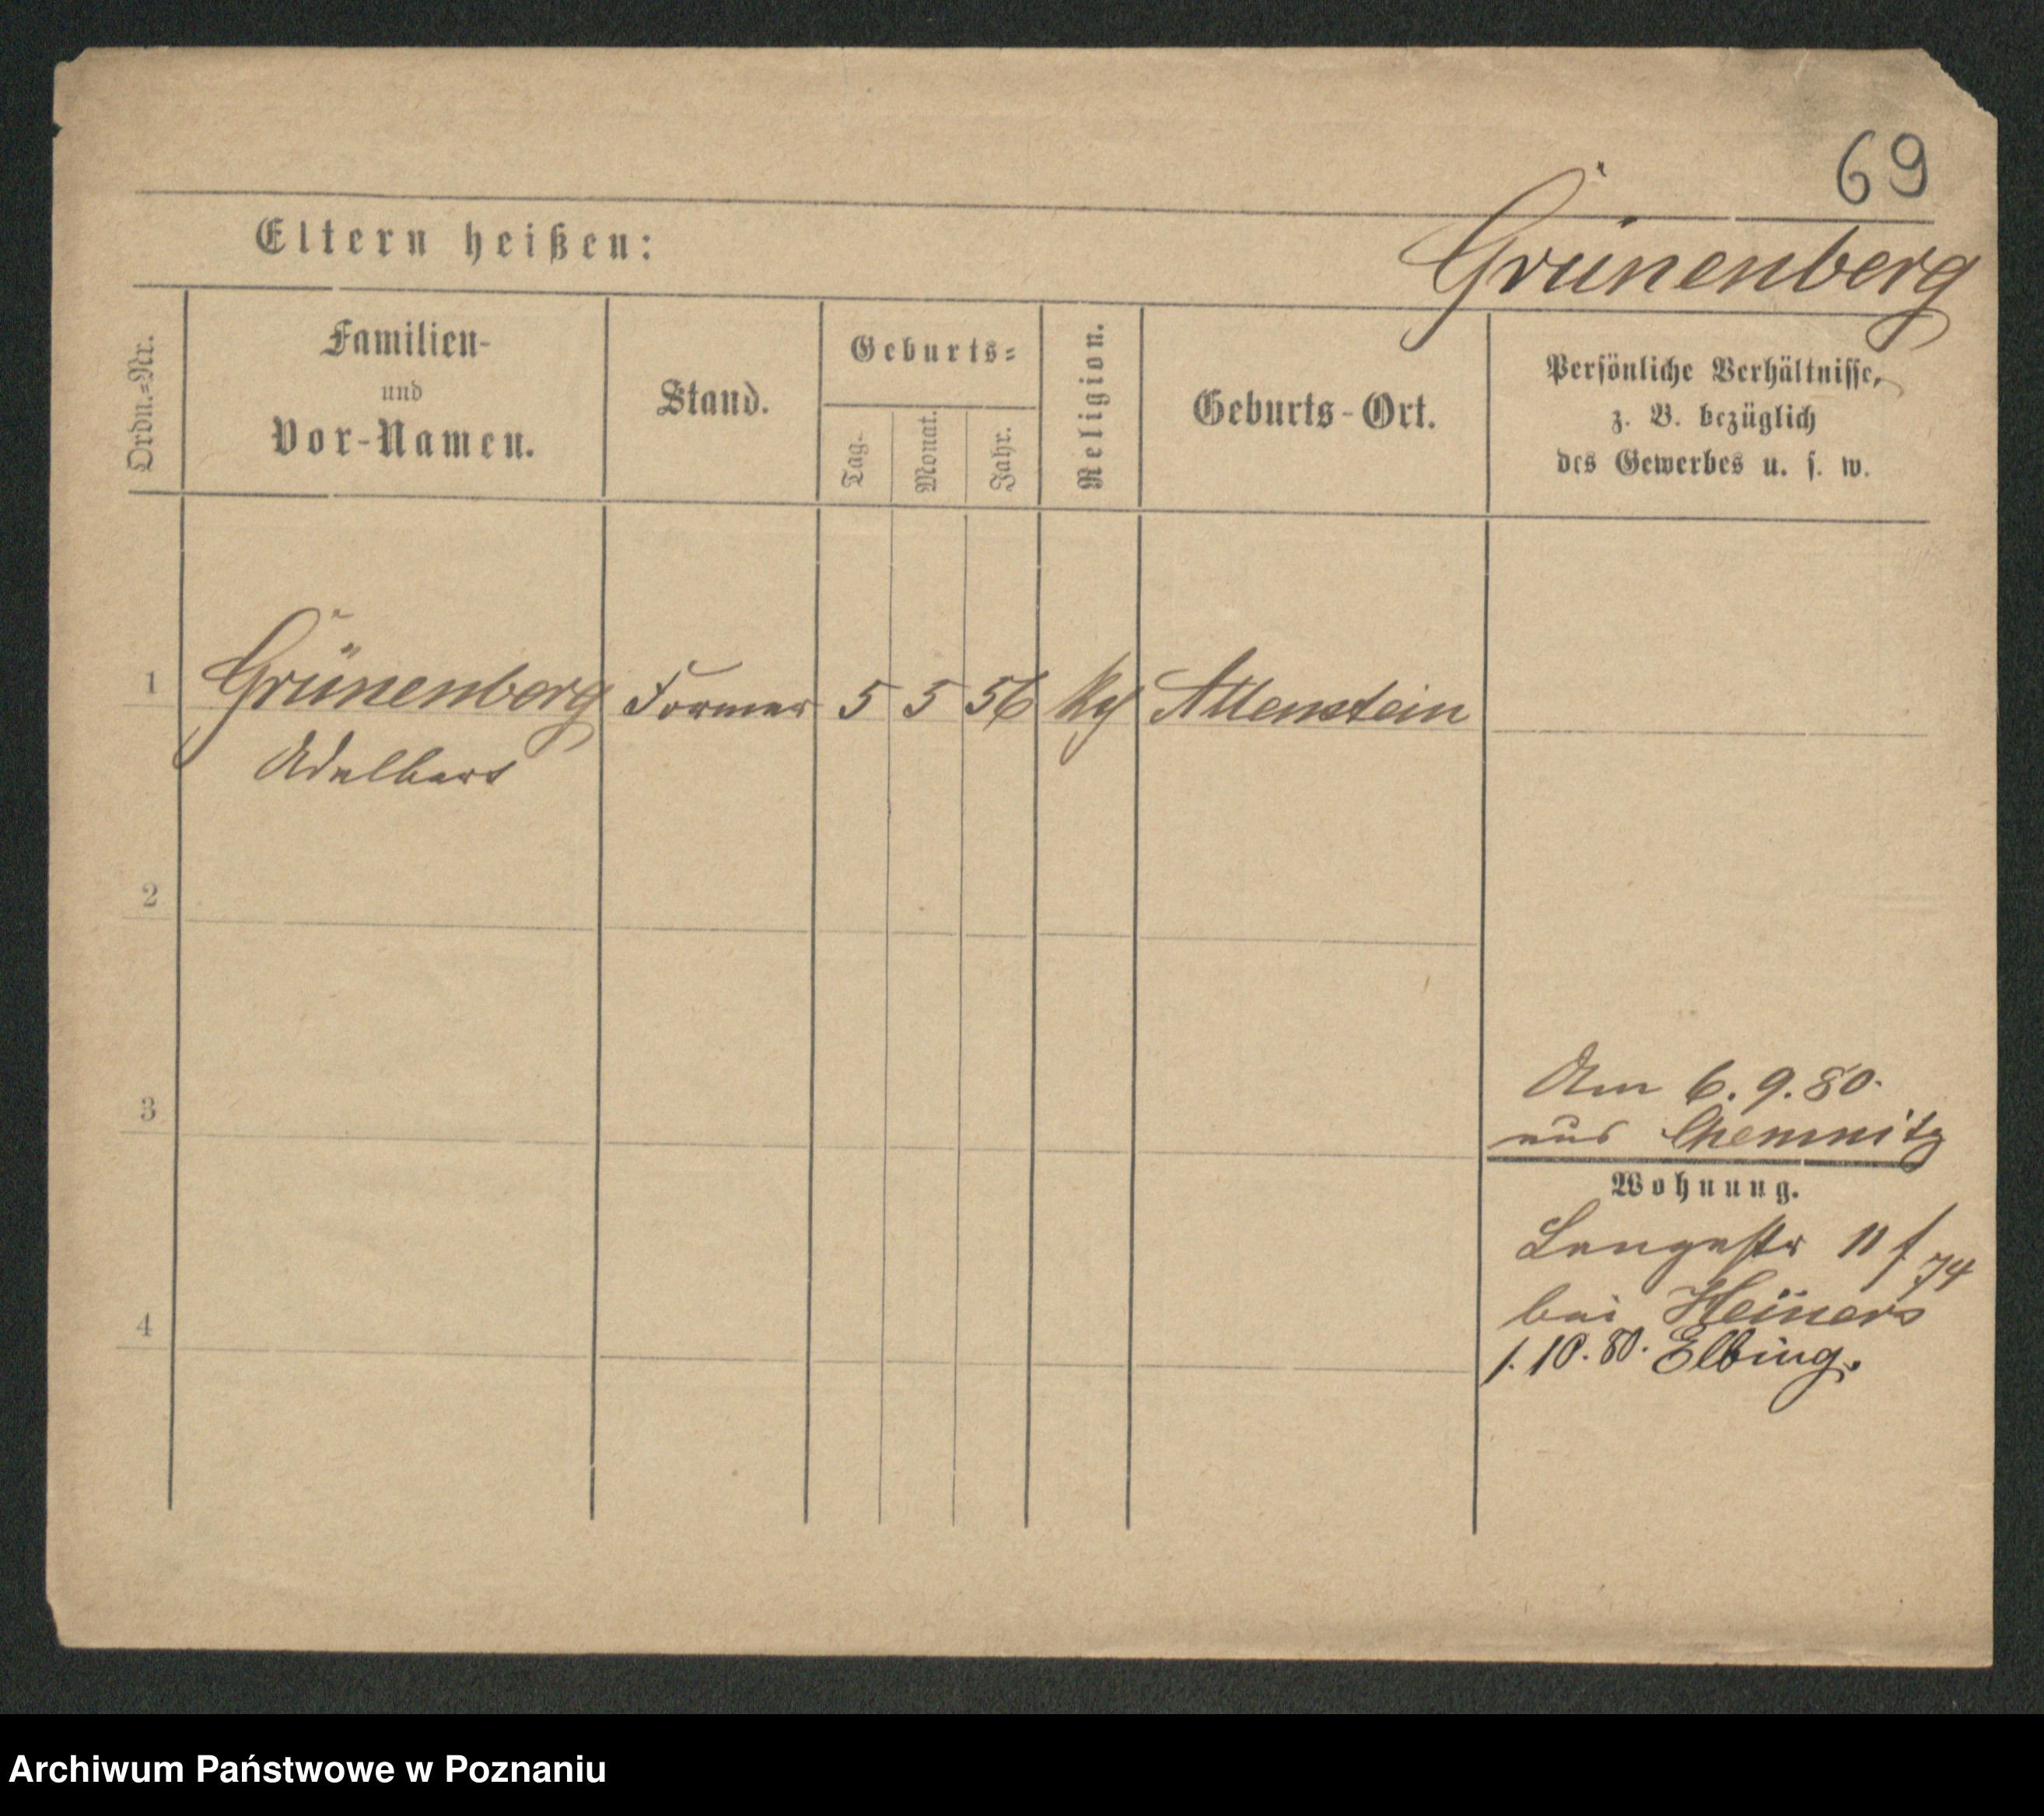 69
Grünenberg
Eltern heißen:
Ordn.=Nr.
Familien-
und
Vor-Namen.
Stand.
Geburts=
Tag.
Monat.
Jahr.
Religion.
Geburts-Ort.
Persönliche Verhältnisse,
z. B. bezüglich
des Gewerbes u. s. w.
1 Grünenberg Former 5 5 56 Allenstein
Adelbert
2
3
4
Am 6. 9. 80.
aus Chemnitz
Wohnung.
Langestr 11 f 74
bei Heiners
1. 10. 80. Elbing.
Archiwum Państwowe w Poznaniu